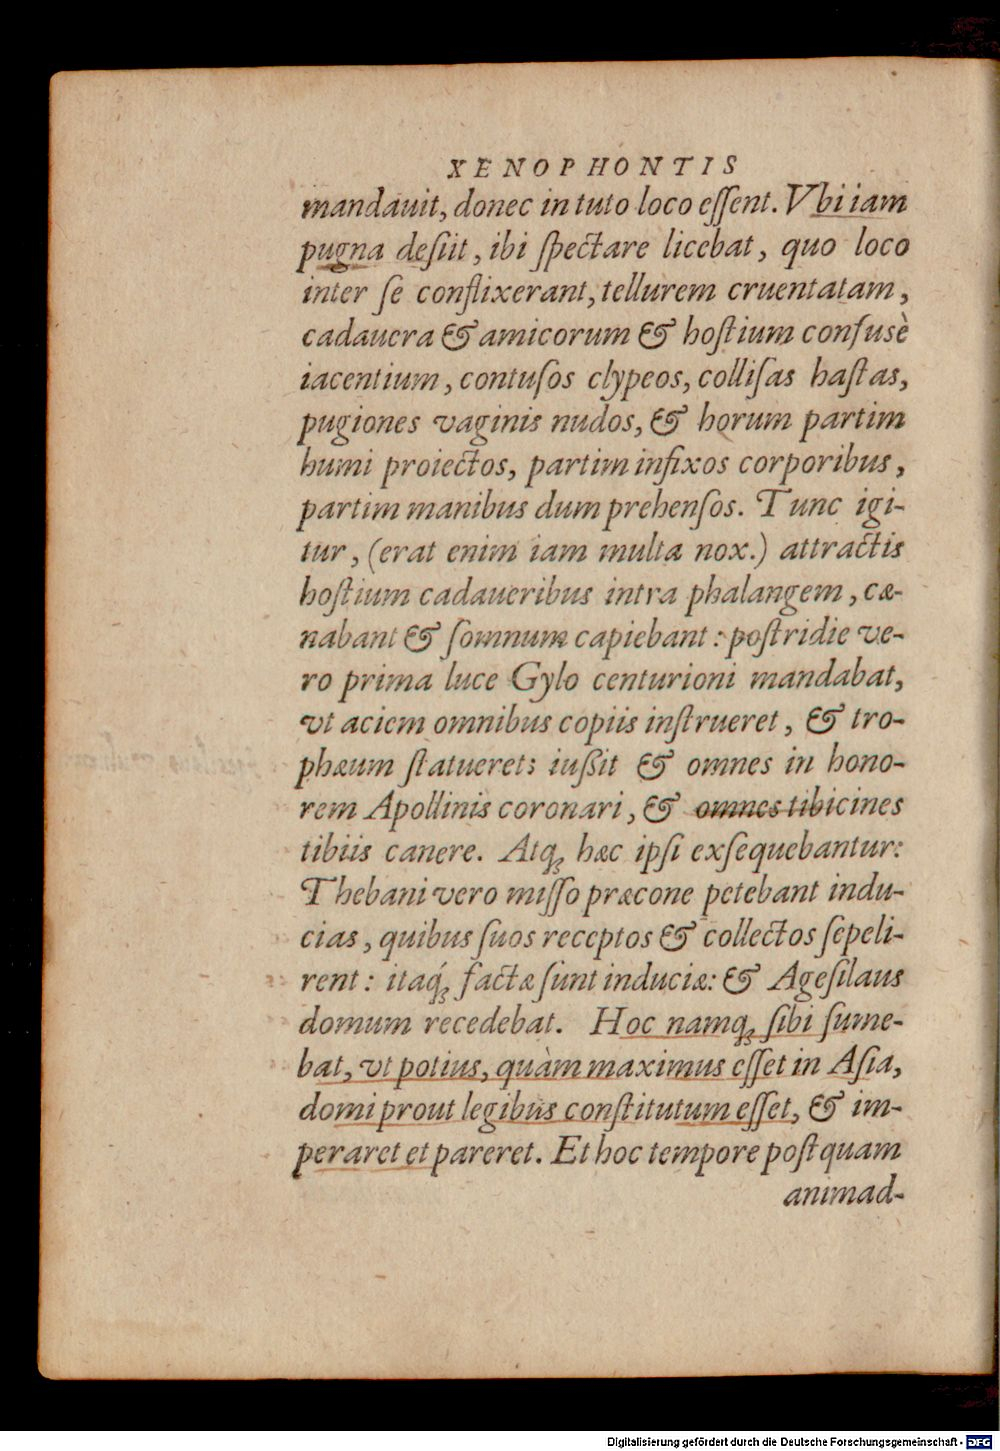 XENOPHONTIS
mandauit, donec in tuto loco eſſent. Vbi iam
pugna deſiit, ibi ſpectare licebat, quo loco
inter ſe conflixerant, tellurem cruentatam,
cadauera & amicorum & hoſtium confusè
iacentium, contuſos clypeos, colliſas haſtas,
pugiones vaginis nudos, & horum partim
humi proiectos, partim infixos corporibus,
partim manibus dum prehenſos. Tunc igi-
tur, (erat enim iam multa nox.) attractis
hoſtium cadaueribus intra phalangem, cæ-
nabant & ſomnum capiebant: poſtridie ve-
ro prima luce Gylo centurioni mandabat,
vt aciem omnibus copiis inſtrueret, & tro-
phæum ſtatueret: iußit & omnes in hono-
rem Apollinis coronari, & omnes tibicines
tibiis canere. Atq; hæc ipſi exſequebantur:
Thebani vero miſſo præcone petebant indu-
cias, quibus ſuos receptos & collectos ſepeli-
rent: itaq́; factæ ſunt induciæ: & Ageſilaus
domum recedebat. Hoc namq; ſibi ſume-
bat, vt potius, quàm maximus eſſet in Aſia,
domi prout legibus conſtitutum eſſet, & im-
peraret et pareret. Et hoc tempore poſtquam
animad-
Digitalisierung gefördert durch die Deutsche Forschungsgemeinschaft - DFG